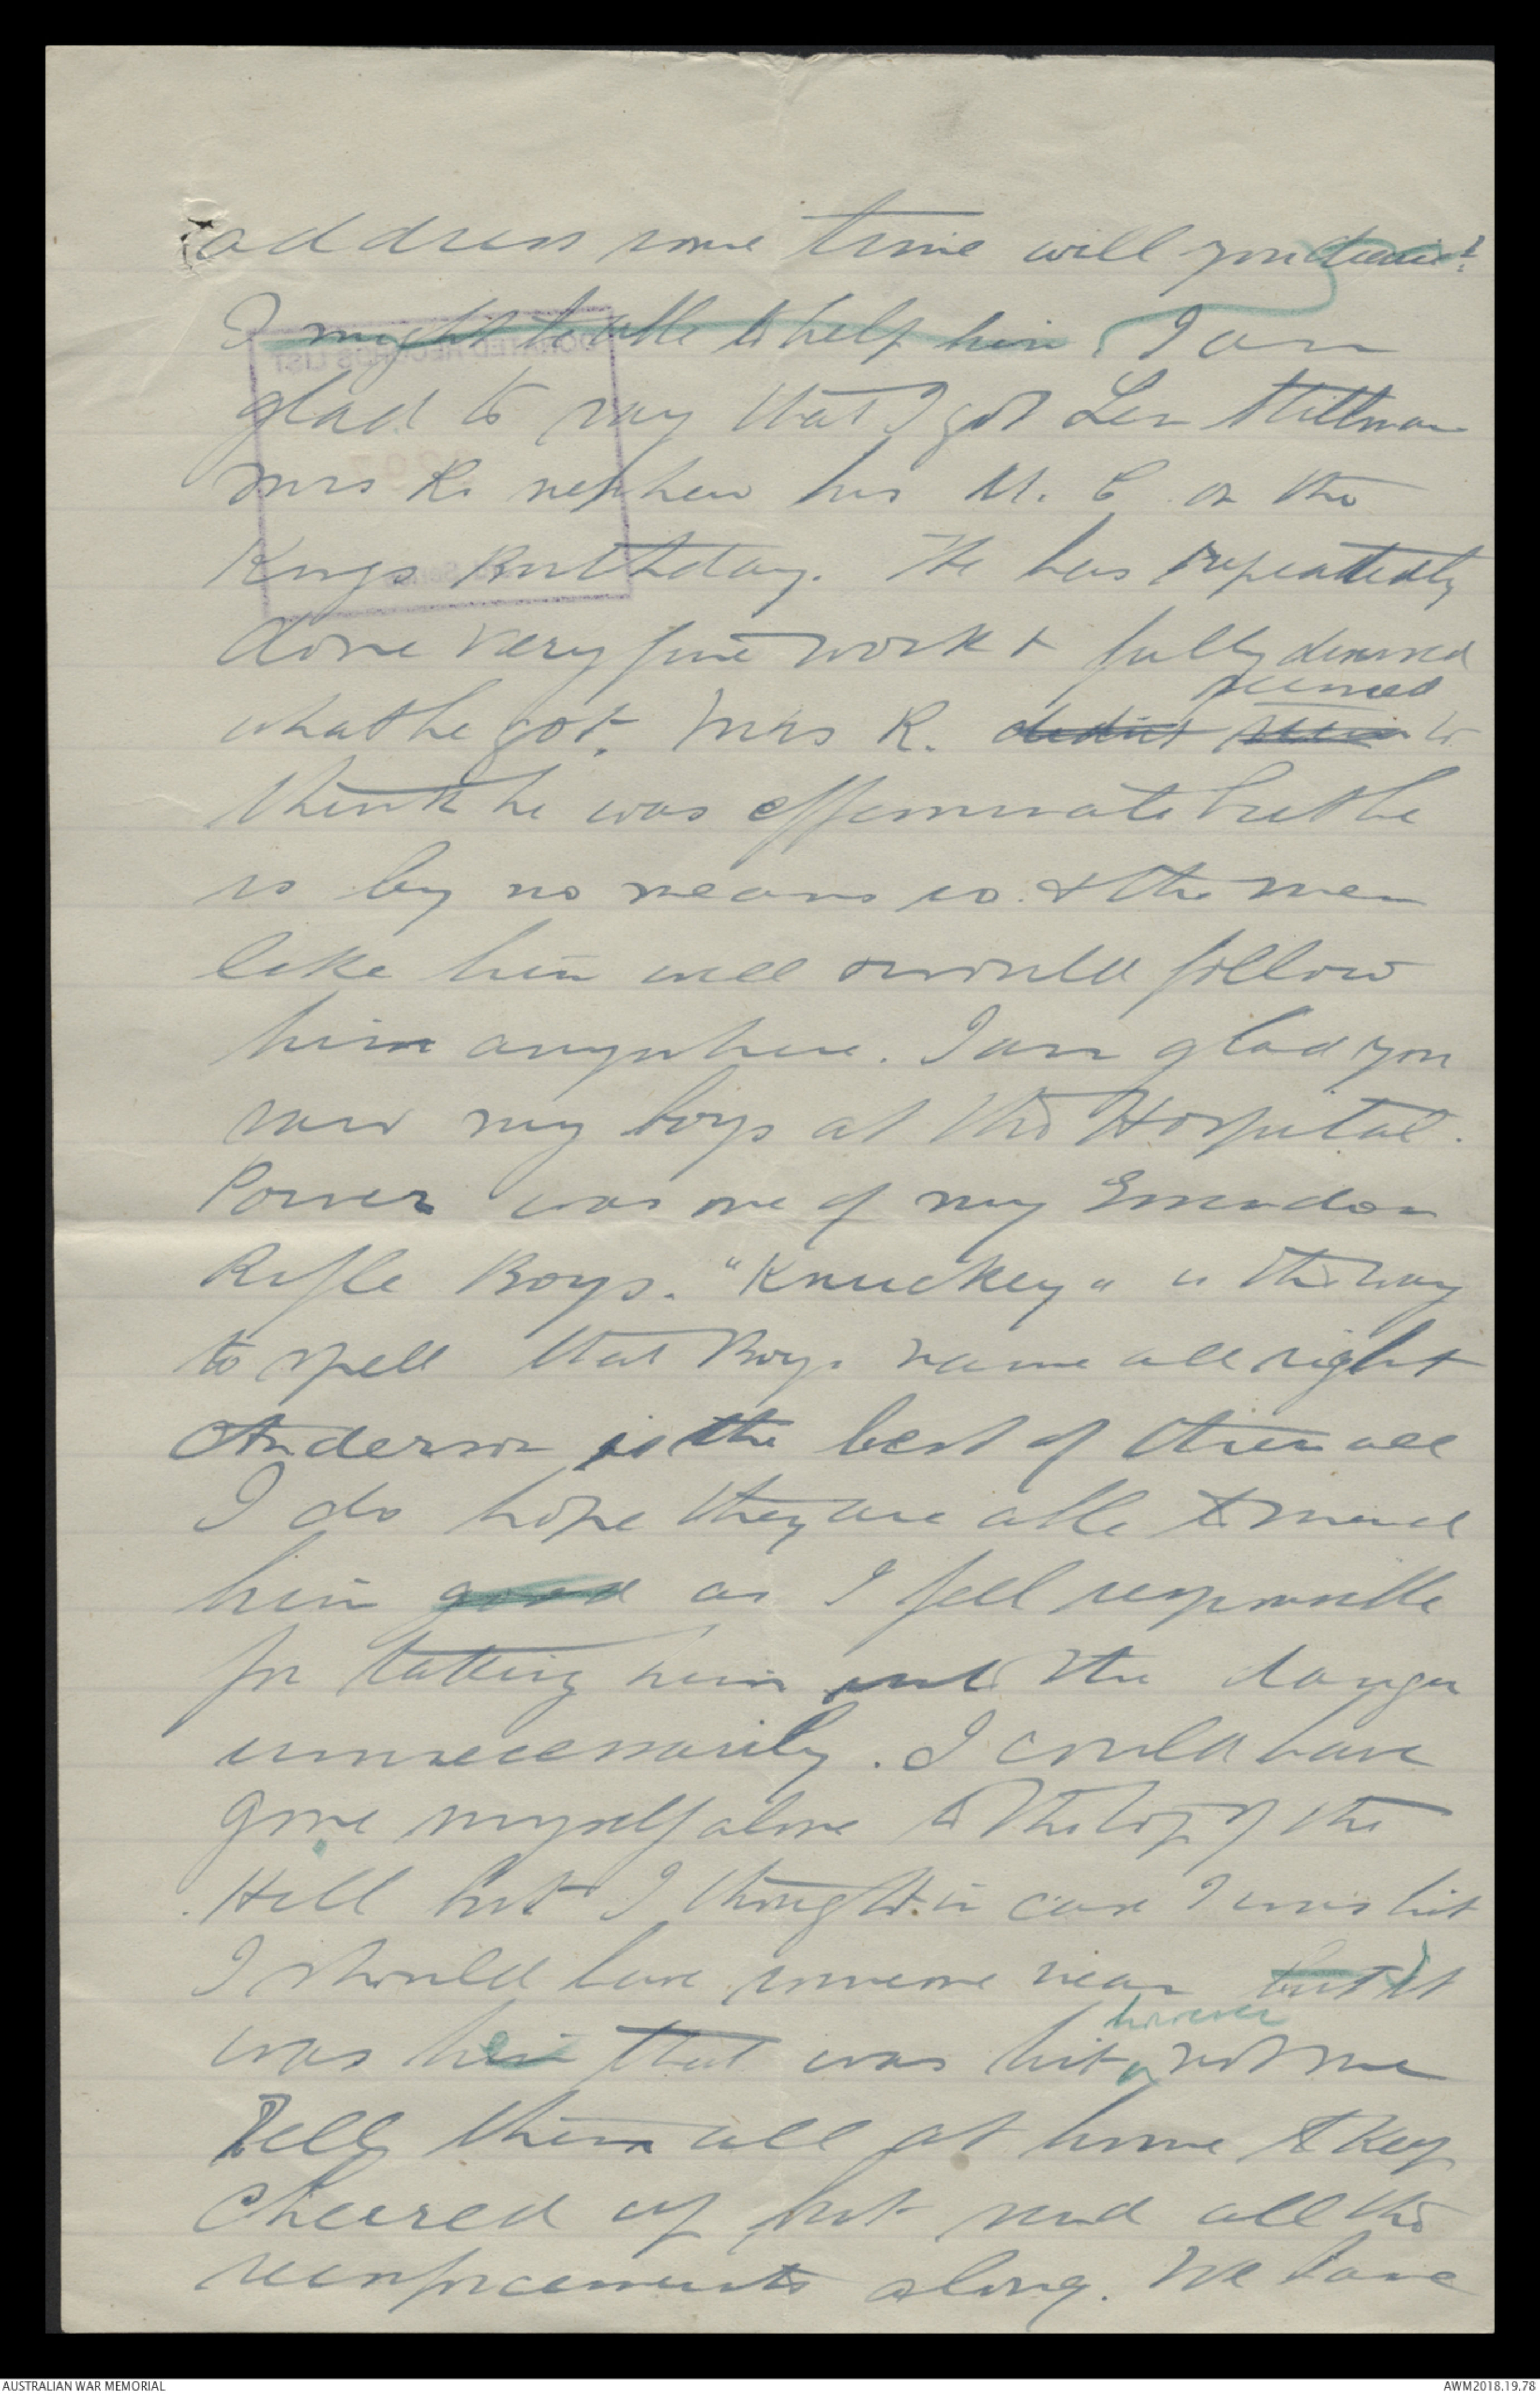 address some time will you dearie?
I might be able to help him. I am
glad to say that I got Len Stillman
Mrs Rs nephew his M. C. on the
Kings Birthday. He has repeatedly
done very fine work & fully deserved
what he got. Mrs R. didnt seem seemed to
think he was effeminate but he
is by no means so & the men
like him well & would follow
him anywhere. I am glad you
saw my boys at the Hospital.
Power was one of my Essendon
Rifle Boys. "Knuckey" is the way
to spell that Boys name all right
Anderson is the best of them all
I do hope they are able to mend
him good as I feel responsible
for taking him into the danger
unnecessarily. I could have
gone myself alone to the top of the
Hill but I thought in case I was hit
I should have someone near but it
was him that was hit however not me
Tell them all at home to keep
cheered up but send all the
reinforcements along. We have
DONATED RECORDS LIST
AUSTRALIAN WAR MEMORIAL
AWM2018.19.78